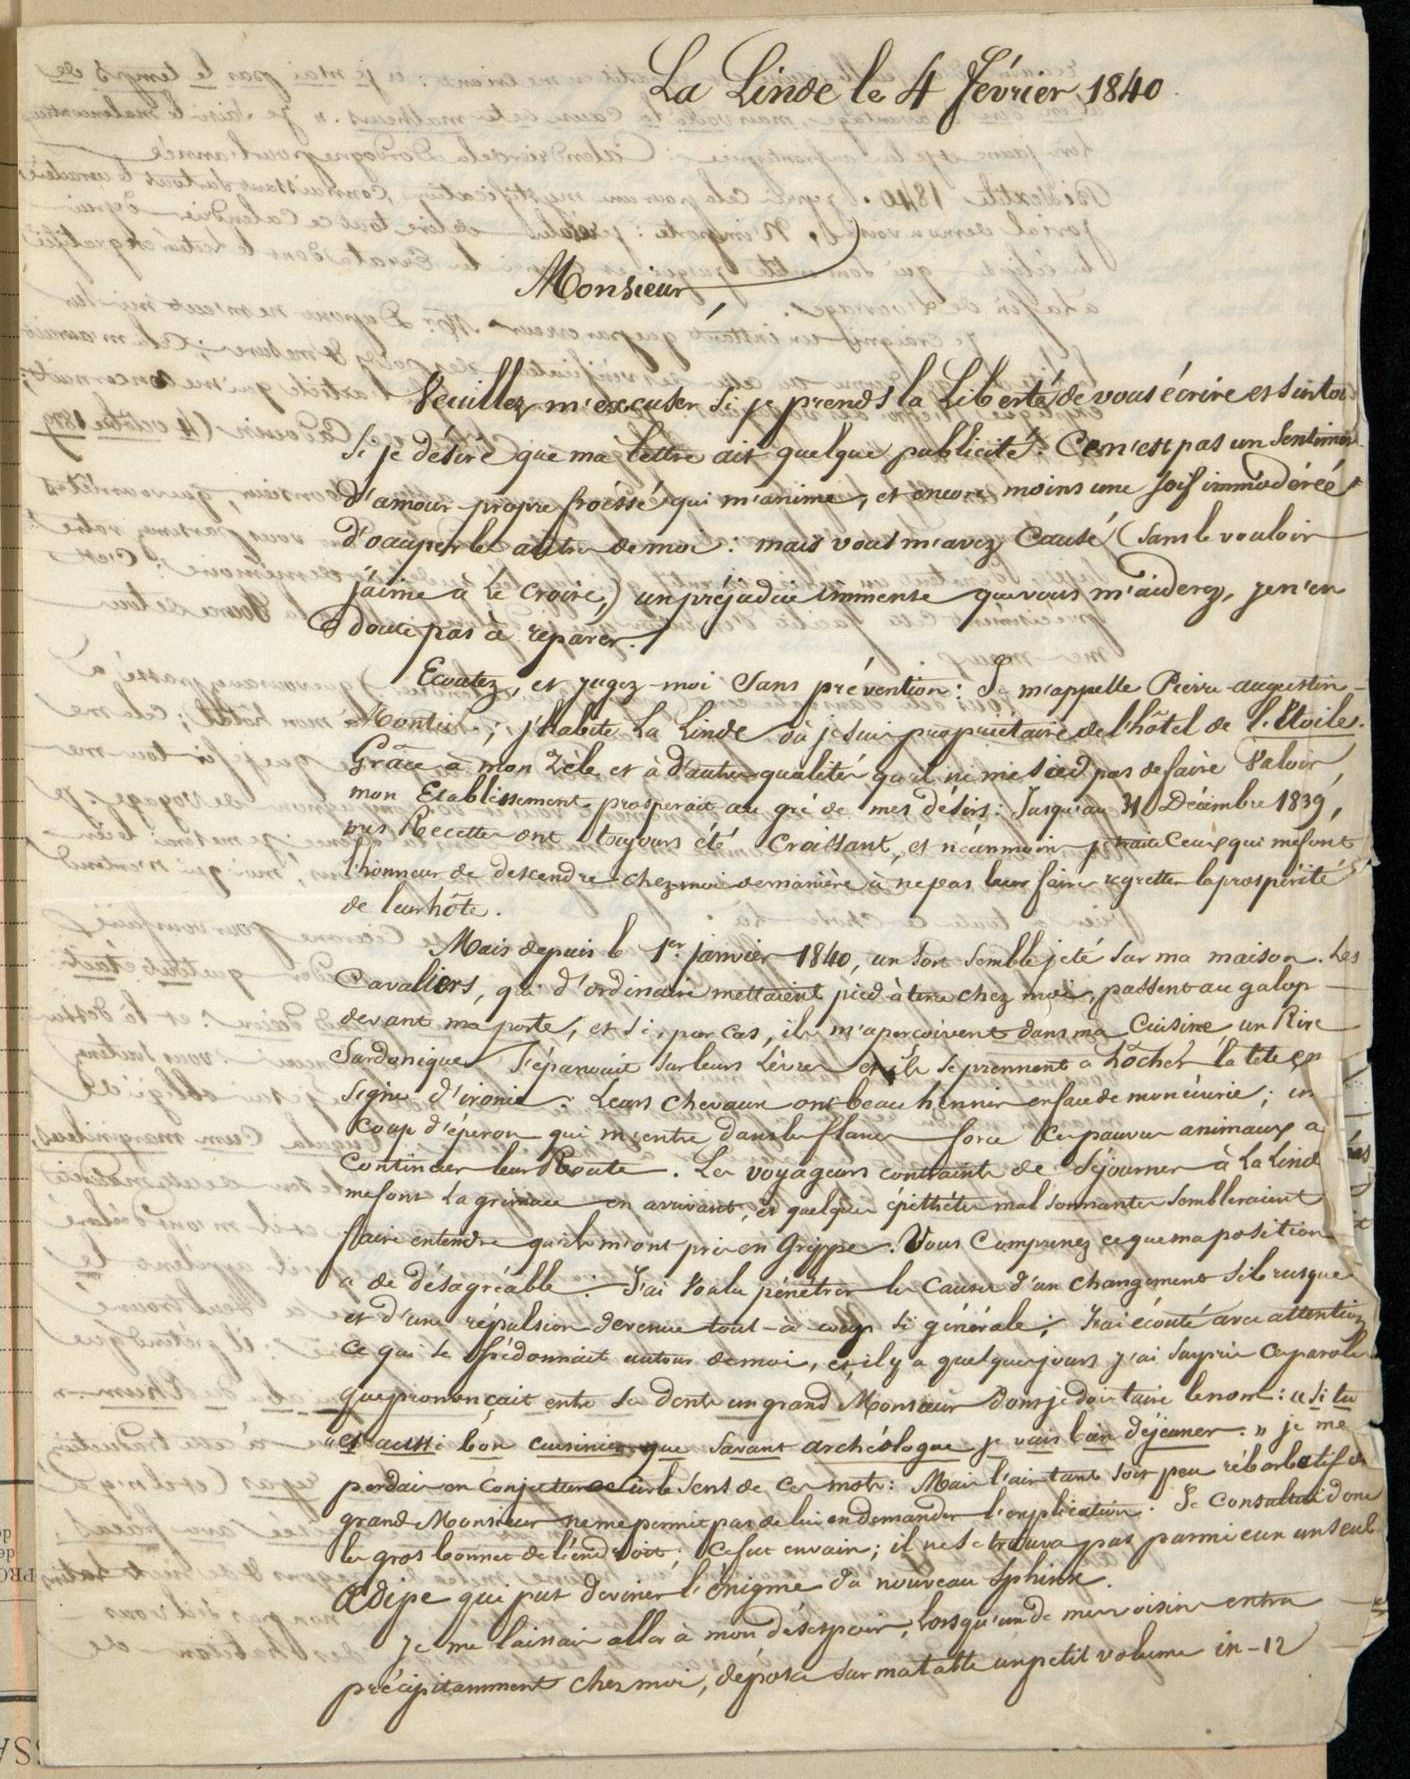 La Linde le 4 février 1840
Monsieur,
Veuillez m'excuser si je prends la Liberté de vous écrire et surtout
si je désire que ma lettre ait quelque publicité. Ce n'est pas un sentiment
d'amour-propre froissé qui m'anime, et encore moins une soif immodérée
d'occuper les autres de moi : mais vous m'avez causé (sans le vouloir
j'aime à le croire,) un préjudice immense que vous m'aiderez, je n'en
doute pas à réparer.
Ecoutez, et jugez-moi sans prévention : Je m'appelle Pierre-augustin
; j'habite La Linde où je suis propriétaire de l'hôtel de l'Etoile.
Grâce à mon zèle et à d'autres qualités qu'il ne me sied pas de faire valoir,
mon Etablissement prospérait au gré de mes désirs : Jusqu'au 31 Décembre 1839,
mes Recettes ont toujours été croissant, et néanmoins je traite ceux qui me font
l'honneur de descendre chez moi de manière à ne pas leur faire regretter la prospérité
de leur hôte.
Mais depuis le 1er janvier 1840, un sort semble jeté sur ma maison. Les
Cavaliers, qui d'ordinaire mettaient pied à terre chez moi, passent au galop
devant ma porte, et si, par cas, ils m'aperçoivent dans ma Cuisine un Rire
Sardonique s'épanouit sur leurs lèvres et ils se prennent à hocher la tête en
signe d'ironie. Leurs chevaux ont beau hennir en face de mon écurie ; un
coup d'éperon qui m'entre dans les flancs force ces pauvres animaux a
continuer leur Route. Les voyageurs contraints de séjourner à La Linde
me font la grimace en arrivant, et quelques épithètes mal sonnantes sembleraient
faire entendre qu'ils m'ont pris en Grippe. Vous comprenez ce que ma position
a de désagréable. J'ai voulu pénétrer les causes d'un changement si brusque
et d'une répulsion devenue tout-à-coup si générale ; J'ai écouté avec attention
ce qui se fredonnait autour de moi, et, il y a quelques jours j'ai surpris ces paroles
que prononçait entre ses dents un grand Monsieur dont je dois taire le nom : « si tu
« es aussi bon cuisinier que savant archéologue je vais bien déjeuner. » je me
perdais en conjectures sur le sens de ces mots : Mais l'air tant soit peu rébarbatif du
grand Monsieur ne me permit pas de lui en demander l'explication. Je consultai donc
les gros bonnets de l'endroit ; ce fut en vain ; il ne se trouva pas parmi eux un seul
Œdipe qui put deviner l'énigme du nouveau Sphinx.
Je me laissais aller à mon désespoir, lorsqu'un de mes voisins entra
précipitamment chez moi, déposa sur ma table un petit volume in-12